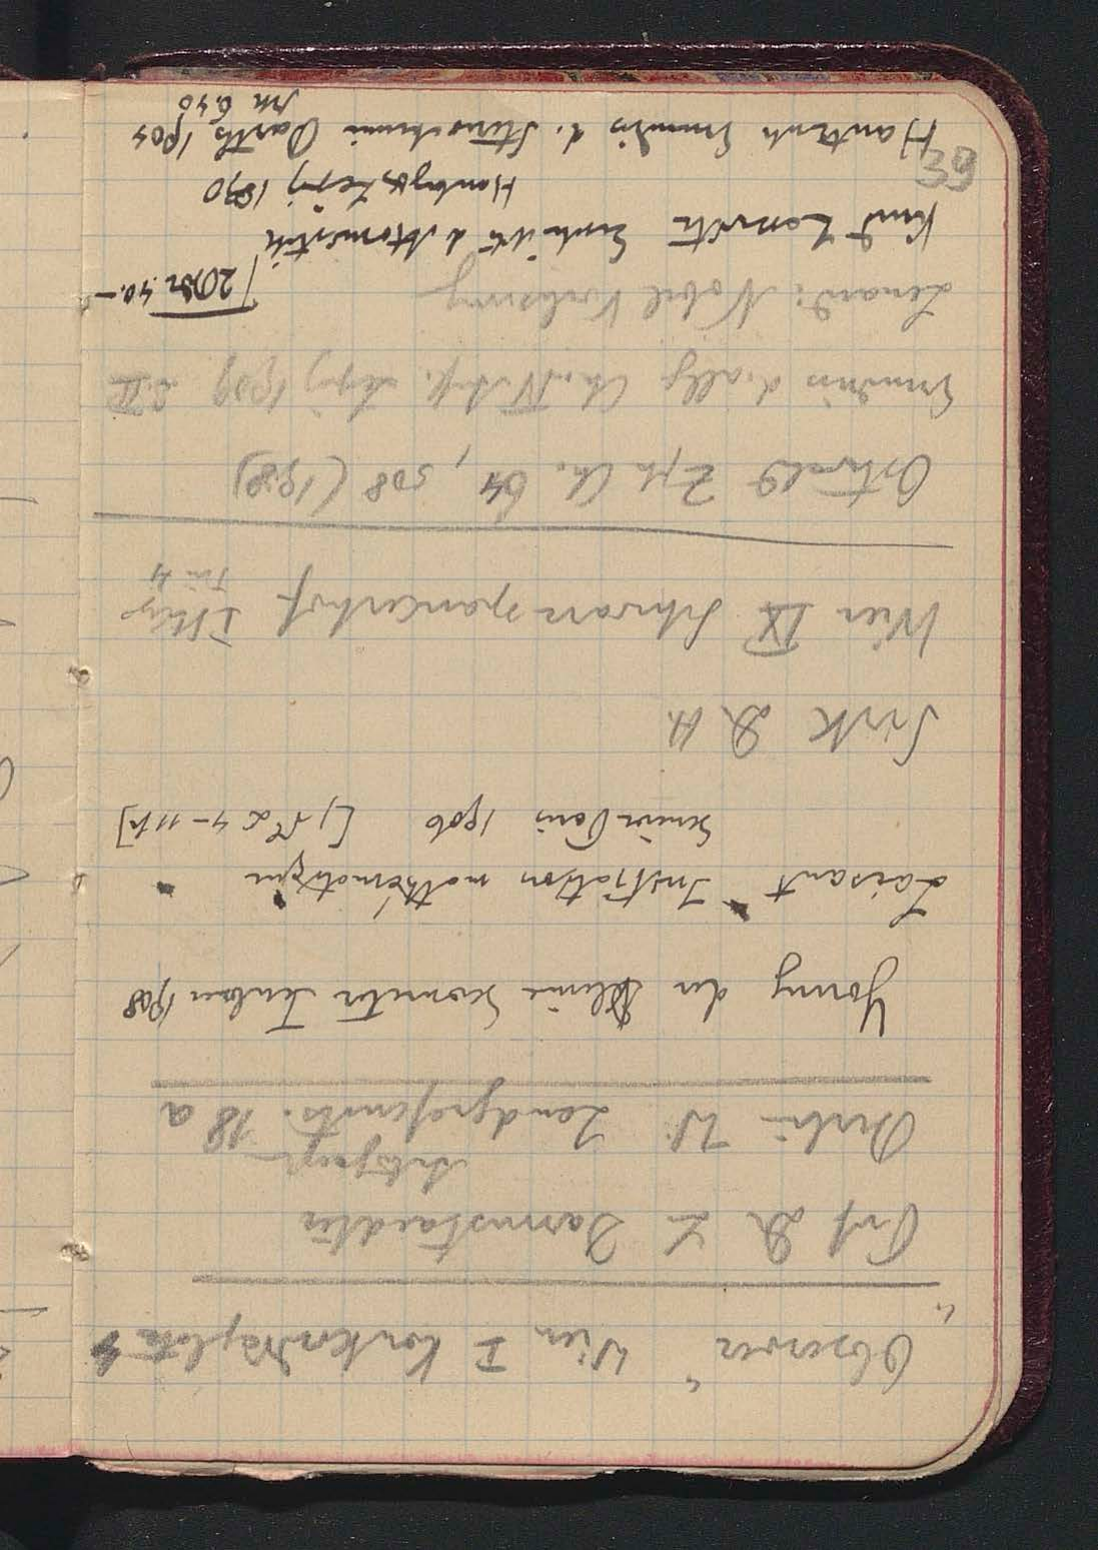 "Observer" Wien I Konkordiaplatz 4
Prof Dr L Darmstaedter
Berlin W. Landgrafenstr. 18 a
Young der kleine Geometer Teubner 1908
Laisant "Initiation mathématique"
Paris 1906
Sirk Dr H.
Wien IX Schwarzspanierhof
Ostwald Z ph Ch. 64, 508 (1908)
Grundriss d. allg Ch. IV Aufl. Leipzig 1909
Lenard: Nobel Vorlesung
Kurd Lasswitz Geschichte d Atomistik
Hamburg & Leipzig 1890
Hantzsch Grundriss d. Stereochemie Barth 1904
M 6.40
59